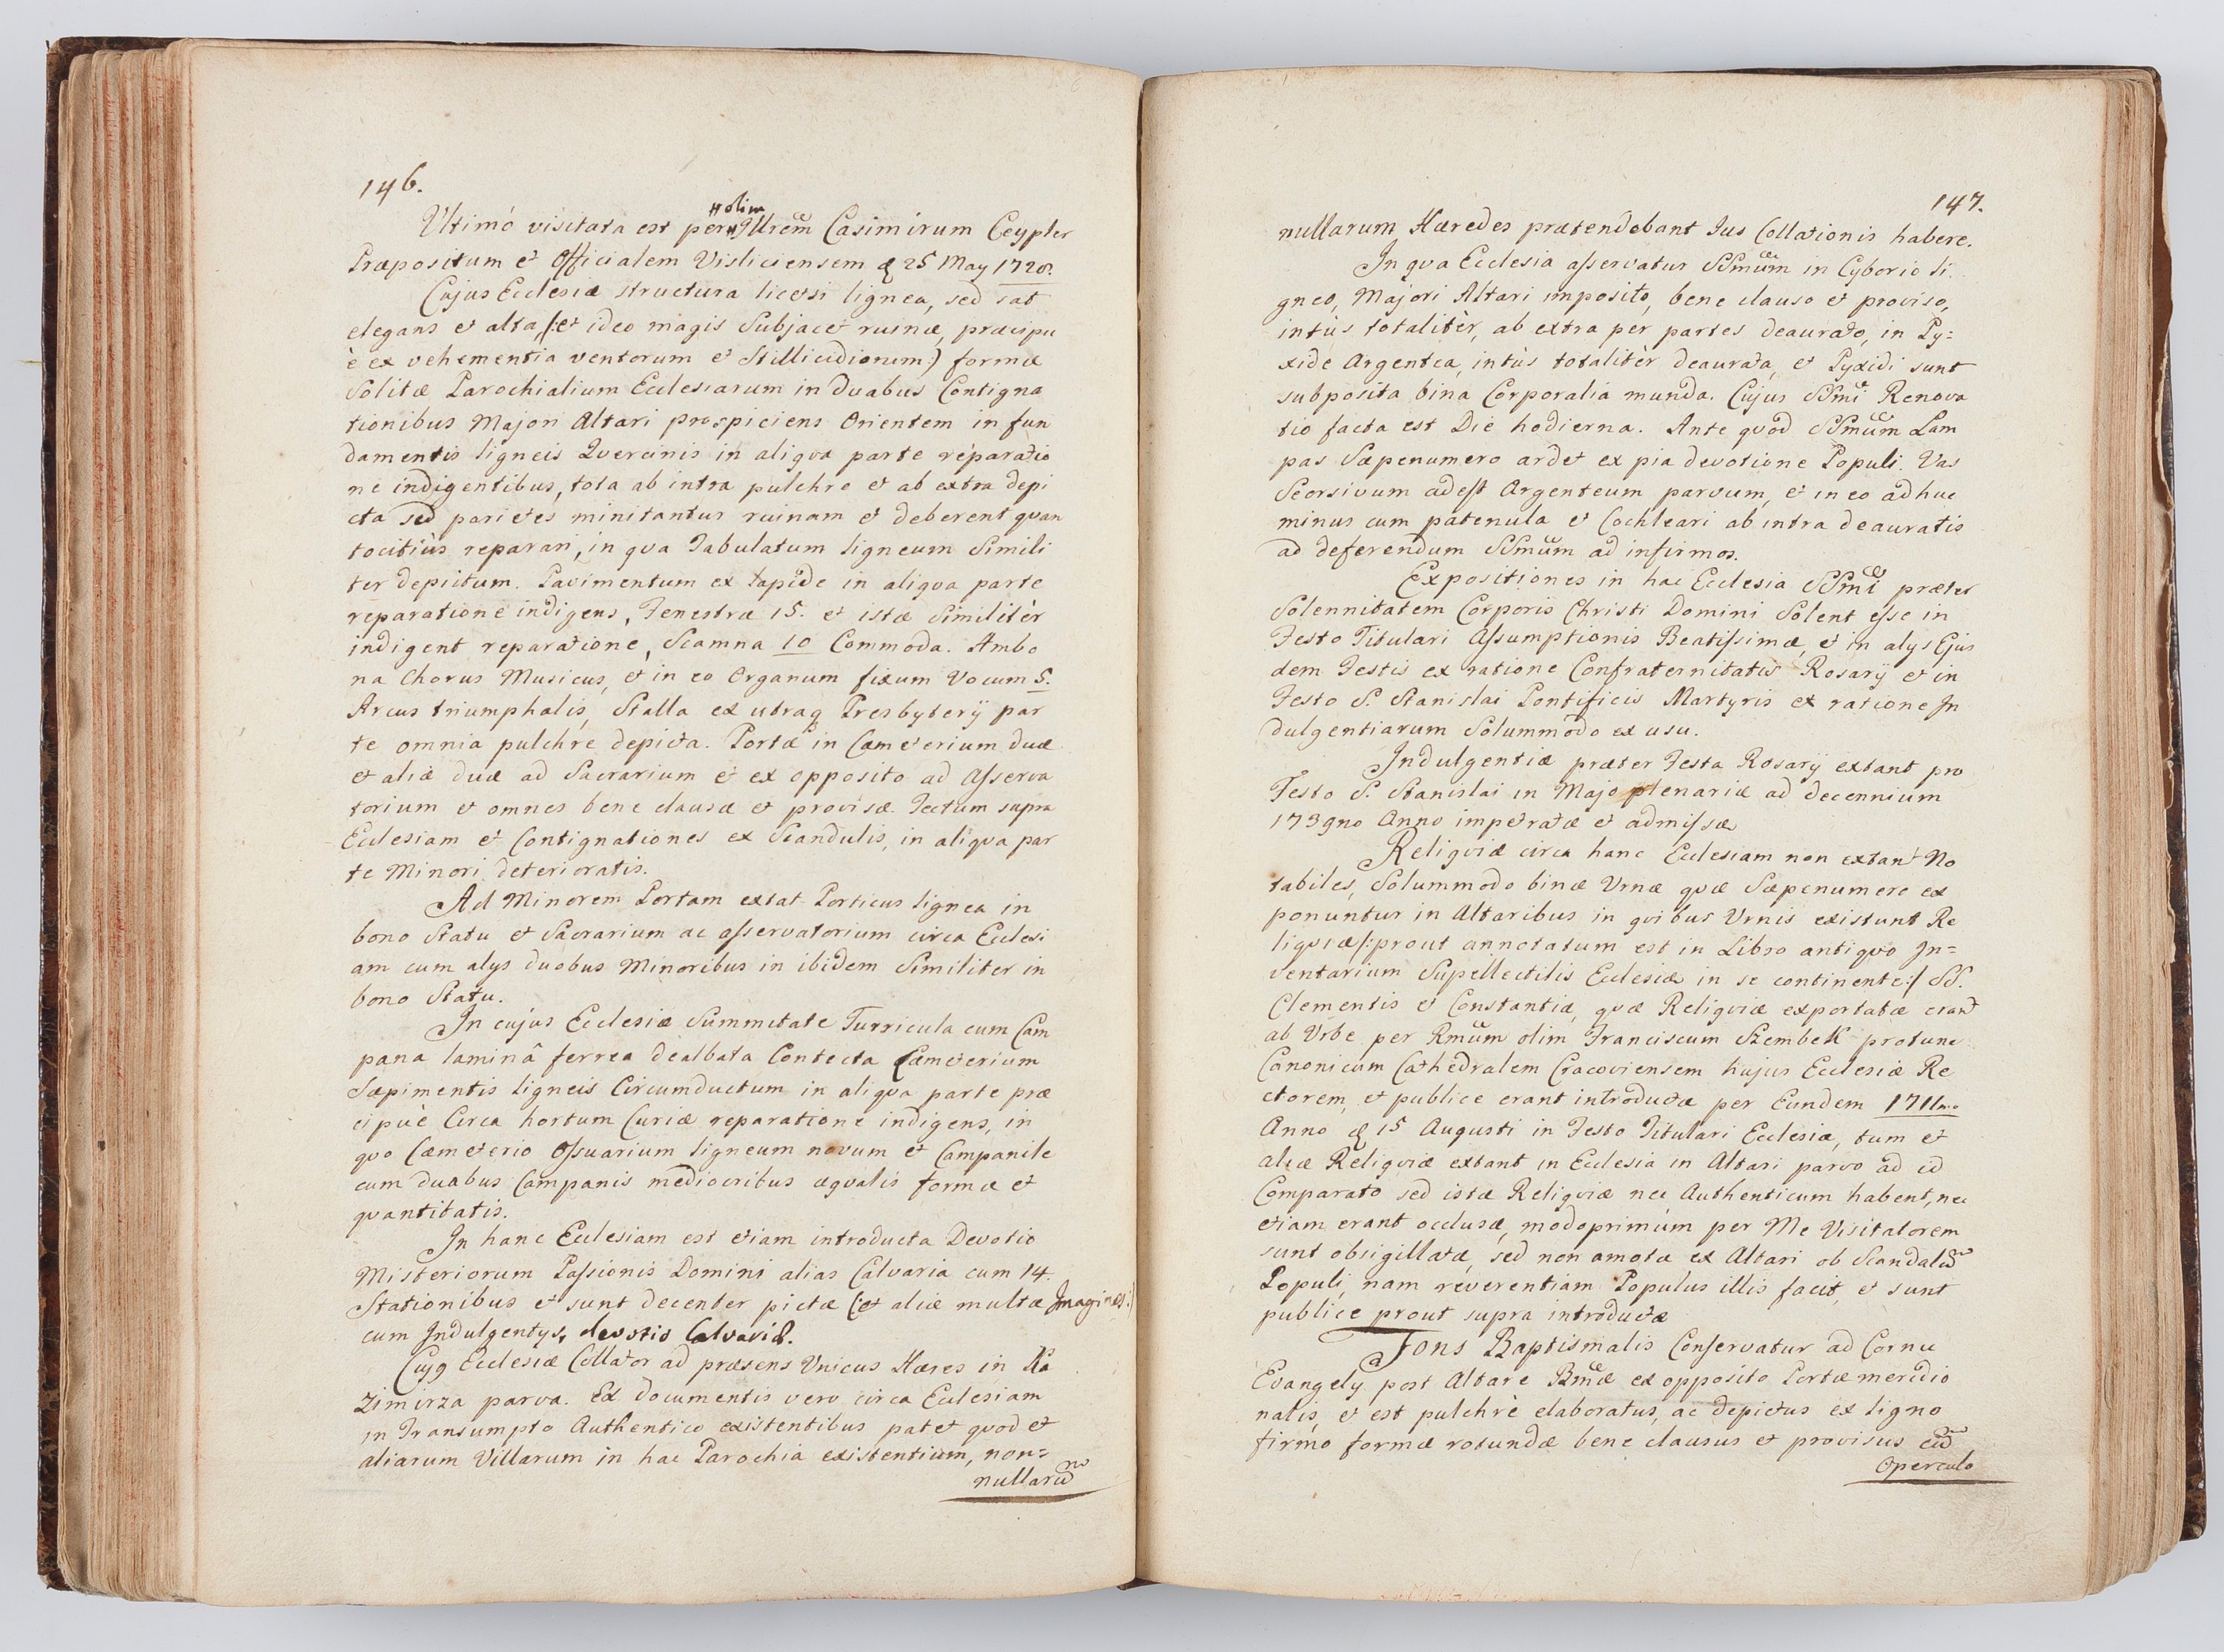 146.
olim
Ultimó visitata est per Illrem Casimirum Ceypler
Præpositum et Officialem Visliciensem d 25 May 1728.
Cujus Ecclesiæ structura licetsi lignea, sed sat
elegans et alta /:et ideo magis Subjacet ruinæ, præcipu
è ex vehementia ventorum et Stillicidiorum:) formæ
Solitæ Parochialium Ecclesiarum in duabus Contigna
tionibus Majori Altari prospiciens Orientem in fun
damentis ligneis Quercinis in aliqva parte réparatio
ne indigentibus, tota ab intra pulchre et ab extra depi
cta sed parietes minitantur ruinam et deberent qvan
tocitiùs reparari, in qva Tabulatum ligneum Simili
ter depictum. Pavimentum ex lapide in aliqva parte
reparatione indigens, Fenestræ 15. et istæ Similitèr
indigent reparatione, Scamna 10 Commoda. Ambo
na Chorus Musicus, et in eo Organum fixum Vocum 5.
Arcus triumphalis, Stalla ex utraq Presbyterÿ par
te omnia pulchre depicta. Portæ in Cæmeterium duæ
et aliæ duæ ad Sacrarium et ex opposito ad Asserva
torium et omnes bene clausæ et provisæ. Tectum supra
Ecclesiam et Contignationes ex Scandulis, in aliqva par
te Minori deterioratis.
Ad Minorem Portam extat Porticus lignea in
bono Statu et Sacrarium ac asservatorium circa Ecclesi
am cum alys duobus Minoribus in ibidem Similiter in
bono Statu.
In cujus Ecclesiæ Summitate Turricula cum Cam
pana laminâ ferrea dealbata Contecta Cæmeterium
Sæpimentis ligneis Circumductum in aliqva parte præ
cipuè Circa hortum Curiæ reparatione indigens, in
qvo Cæmeterio Ossuarium ligneum novum et Campanile
cum duabus Campanis mediocribus æqvalis formæ et
qvantitatis.
In hanc Ecclesiam est etiam introducta Devotio
Misteriorum Passionis Domini alias Calvaria cum 14.
Stationibus et sunt decenter pictæ (:et aliæ multæ Imagines:)
cum Indulgentys, devotio Calvariæ.
Cujq Ecclesiæ Collator ad præsens Unicus Hæres in Ka
zimirza parva. Ex documentis vero circa Ecclesiam
in Transumpto Authentico existentibus patet qvod et
aliarum Villarum in hac Parochia existentium, non=
nullarũ
147.
nullarum Hæredes prætendebant Jus Collationis habere.
In qva Ecclesia asservatur SSmum in Cyborio li
gneo, Majori Altari imposito, bene clauso et proviso,
intùs totalitèr, ab extra per partes deaurato, in Py=
xide Argentea, intùs totalitèr deaurata, et Pyxidi sunt
subposita bina Corporalia munda. Cujus SSmi Renova
tio facta est Die hodierna. Ante qvod SSmum Lam
pas Sæpenumero ardet ex pia devotione Populi. Vas
Seorsivum adest Argenteum parvum, et in eo adhuc
minus cum patenula et Cochleari ab intra deauratis
ad deferendum SSmum ad infirmos.
Expositiones in hac Ecclesia SSmi præter
Solennitatem Corporis Christi Domini Solent esse in
Festo Titulari Assumptionis Beatissimæ, et in alys Ejus
dem Festis ex ratione Confraternitatis Rosarÿ et in
Festo S. Stanislai Pontificis Martyris ex ratione In
dulgentiarum Solummodo ex usu.
Indulgentiæ præter Festa Rosarÿ extant pro
Festo S. Stanislai in Majo plenariæ ad decennium
1739no Anno impetratæ et admissæ
Religviæ circa hanc Ecclesiam non extant No
tabiles, Solummodo binæ Urnæ qvæ Sæpenumero ex
ponuntur in Altaribus in qvibus Urnis existunt Re
ligviæ /:prout annotatum est in Libro antiqvo In=
ventarium Supellectilis Ecclesiæ in se continente:/ SS.
Clementis et Constantiæ, qvæ Religviæ exportatæ erant
ab Urbe per Rmum olim Franciscum Szembek protunc
Canonicum Cathedralem Cracoviensem hujus Ecclesiæ Re
ctorem, et publice erant introductæ per Eundem 1711mo
Anno d 15 Augusti in Festo Titulari Ecclesiæ, tum et
aliæ Religviæ extant in Ecclesia in Altari parvo ad id
Comparato sed istæ Religviæ nec Authenticum habent, nec
etiam erant occlusæ, modoprimùm per Me Visitatorem
sunt obsigillatæ, sed non amotæ ex Altari ob Scandalũ
Populi, nam reverentiam Populus illis facit, et sunt
publice prout supra introductæ
Fons Baptismalis Conservatur ad Cornu
Evangely post Altare Bmæ ex opposito Portæ meridio
nalis, et est pulchrè elaboratus, ac depictus ex ligno
firmo formæ rotundæ bene clausus et provisus cũ
Operculo